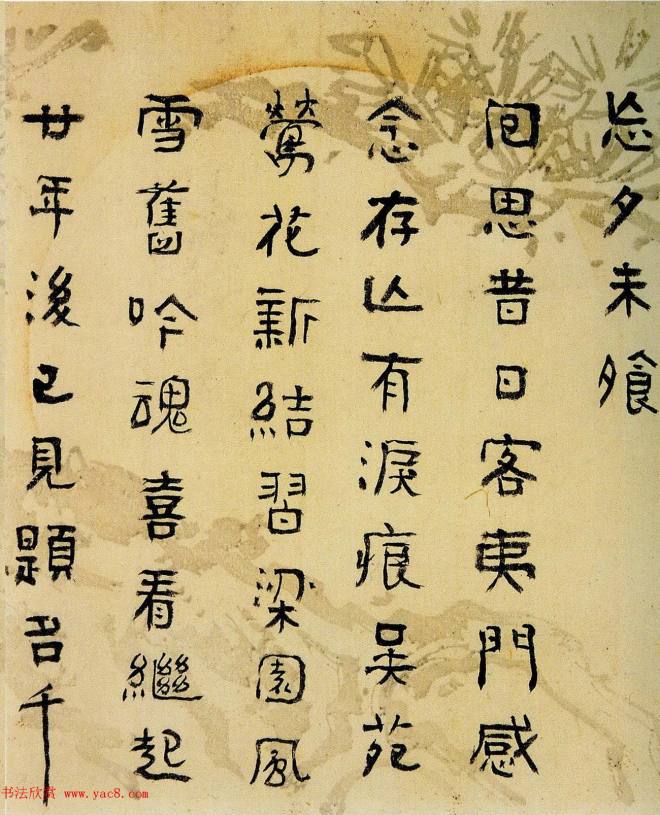 忘夕未飧
回思昔日客夷門感
念存亾有淚痕吳苑
鶯花新結習梁園風
雪舊吟魂喜看繼起
廿年後已見題名千
书法欣赏 www.yac8.com